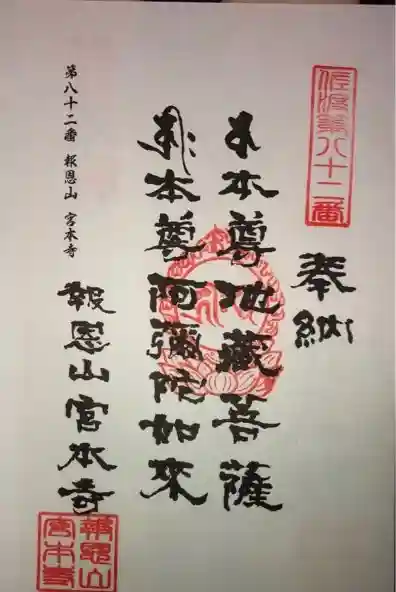 佐渡第八十二番
奉納
本尊地藏菩薩
本尊阿彌陀如來
報恩山宮本寺
報恩山
宮本寺
第八十二番 報恩山 宮本寺